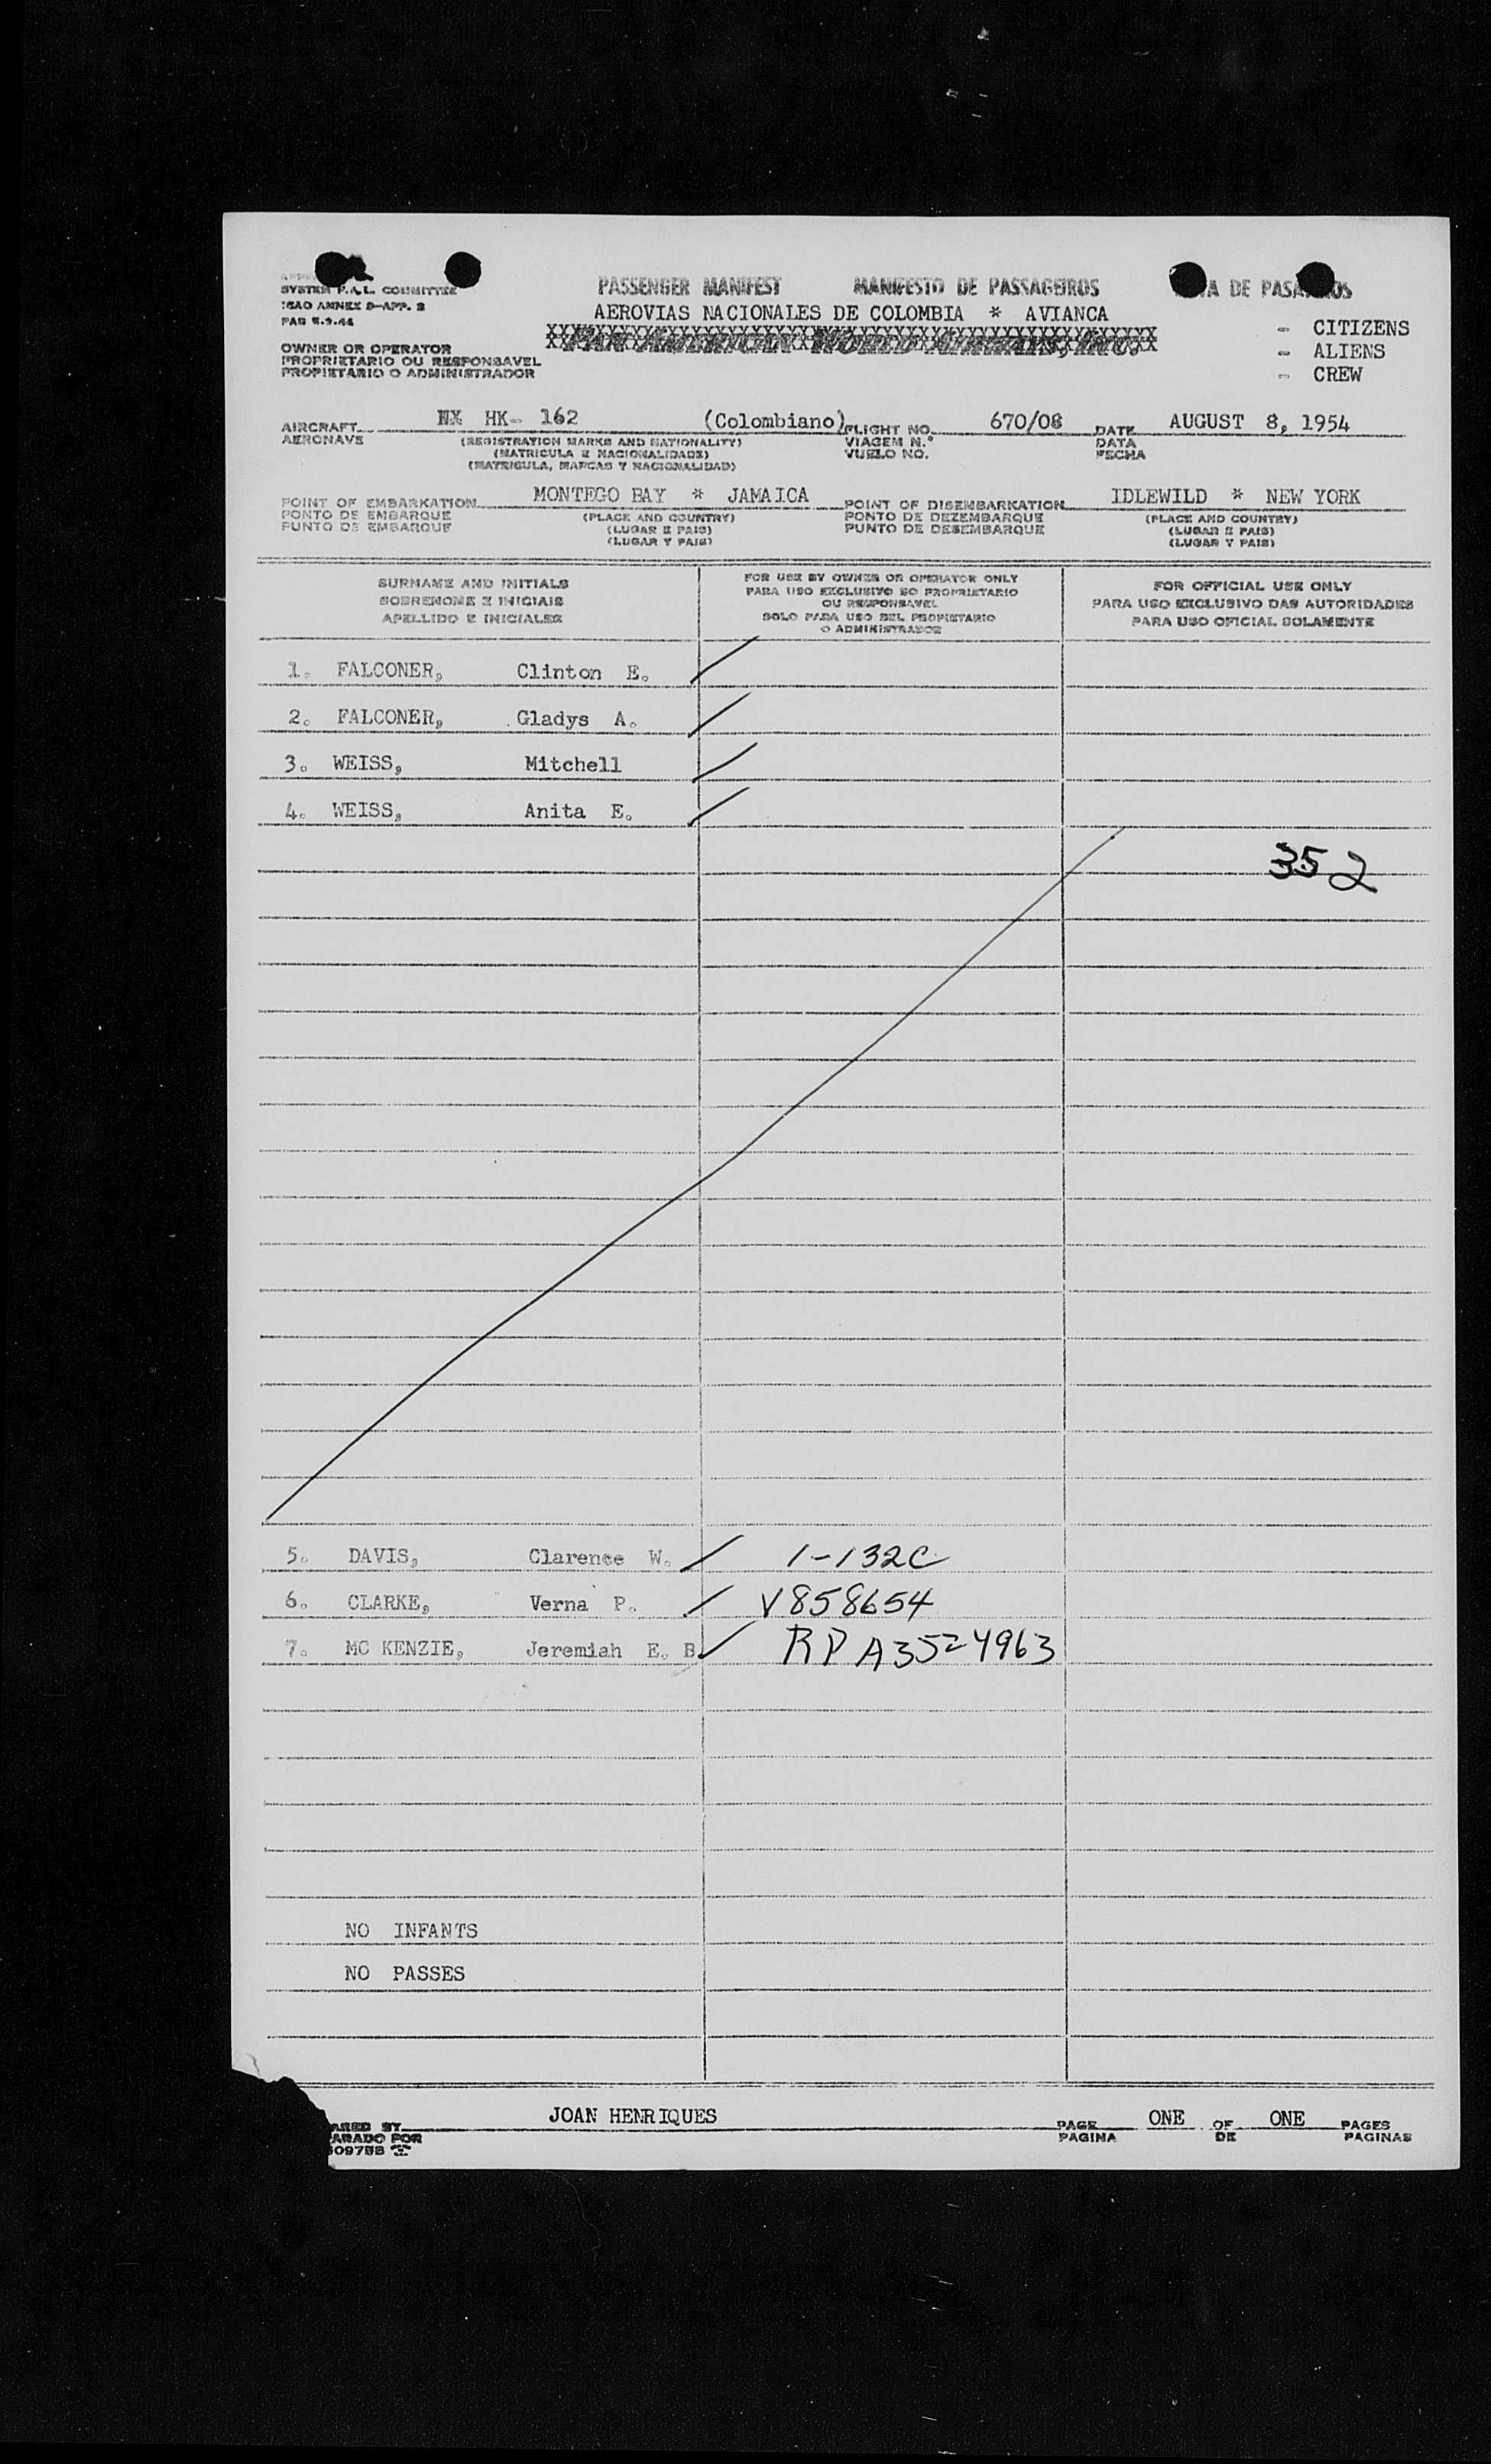 SYSTEM F.A.L. COMMITTEE
ICAO ANNEX 9-APP. 2
PASSENGER MANIFEST MANIFESTO DE PASSAGEIROS DE
AEROVIAS NACIONALES DE COLOMBIA * AVIANCA
PAN AMERICAN WORLD AIRWAYS, INC.
- CITIZENS
- ALIENS
- CREW
OWNER OR OPERATOR
PROPRIETARIO OU RESPONSAVEL
PROPIETARIO O ADMINISTRADOR
AIRCRAFT NX HK- 162 (Colombiano) FLIGHT NO. 670/08 DATE AUGUST 8, 1954
AERONAVE (REGISTRATION MARKS AND NATIONALITY) VIAGEM N.º DATA
(MATRICULA E NACIONALIDADE) VUELO NO. FECHA
(MATRICULA, MARCAS Y NACIONALIDAD)
POINT OF EMBARKATION MONTEGO BAY * JAMAICA POINT OF DISEMBARKATION IDLEWILD * NEW YORK
PONTO DE EMBARQUE (PLACE AND COUNTRY) PONTO DE DEZEMBARQUE (PLACE AND COUNTRY)
PUNTO DE EMBARQUE (LUGAR E PAIS) PUNTO DE DESEMBARQUE (LUGAR E PAIS)
(LUGAR Y PAIS) (LUGAR Y PAIS)
SURNAME AND INITIALS
SOBRENOME E INICIAIS
APELLIDO E INICIALES
FOR USE BY OWNER OR OPERATOR ONLY
PARA USO EXCLUSIVO DO PROPRIETARIO
OU RESPONSAVEL
SOLO PARA USO DEL PROPIETARIO
O ADMINISTRADOR
FOR OFFICIAL USE ONLY
PARA USO EXCLUSIVO DAS AUTORIDADES
PARA USO OFICIAL SOLAMENTE
1. FALCONER, Clinton E.
2. FALCONER, Gladys A.
3. WEISS, Mitchell
4. WEISS, Anita E.
352
5. DAVIS, Clarence W. 1-132C
6. CLARKE, Verna P. V858654
7. MC KENZIE, Jeremiah E. B. RP A3524963
NO INFANTS
NO PASSES
JOAN HENRIQUES PAGE ONE OF ONE PAGES
PAGINA DE PAGINAS